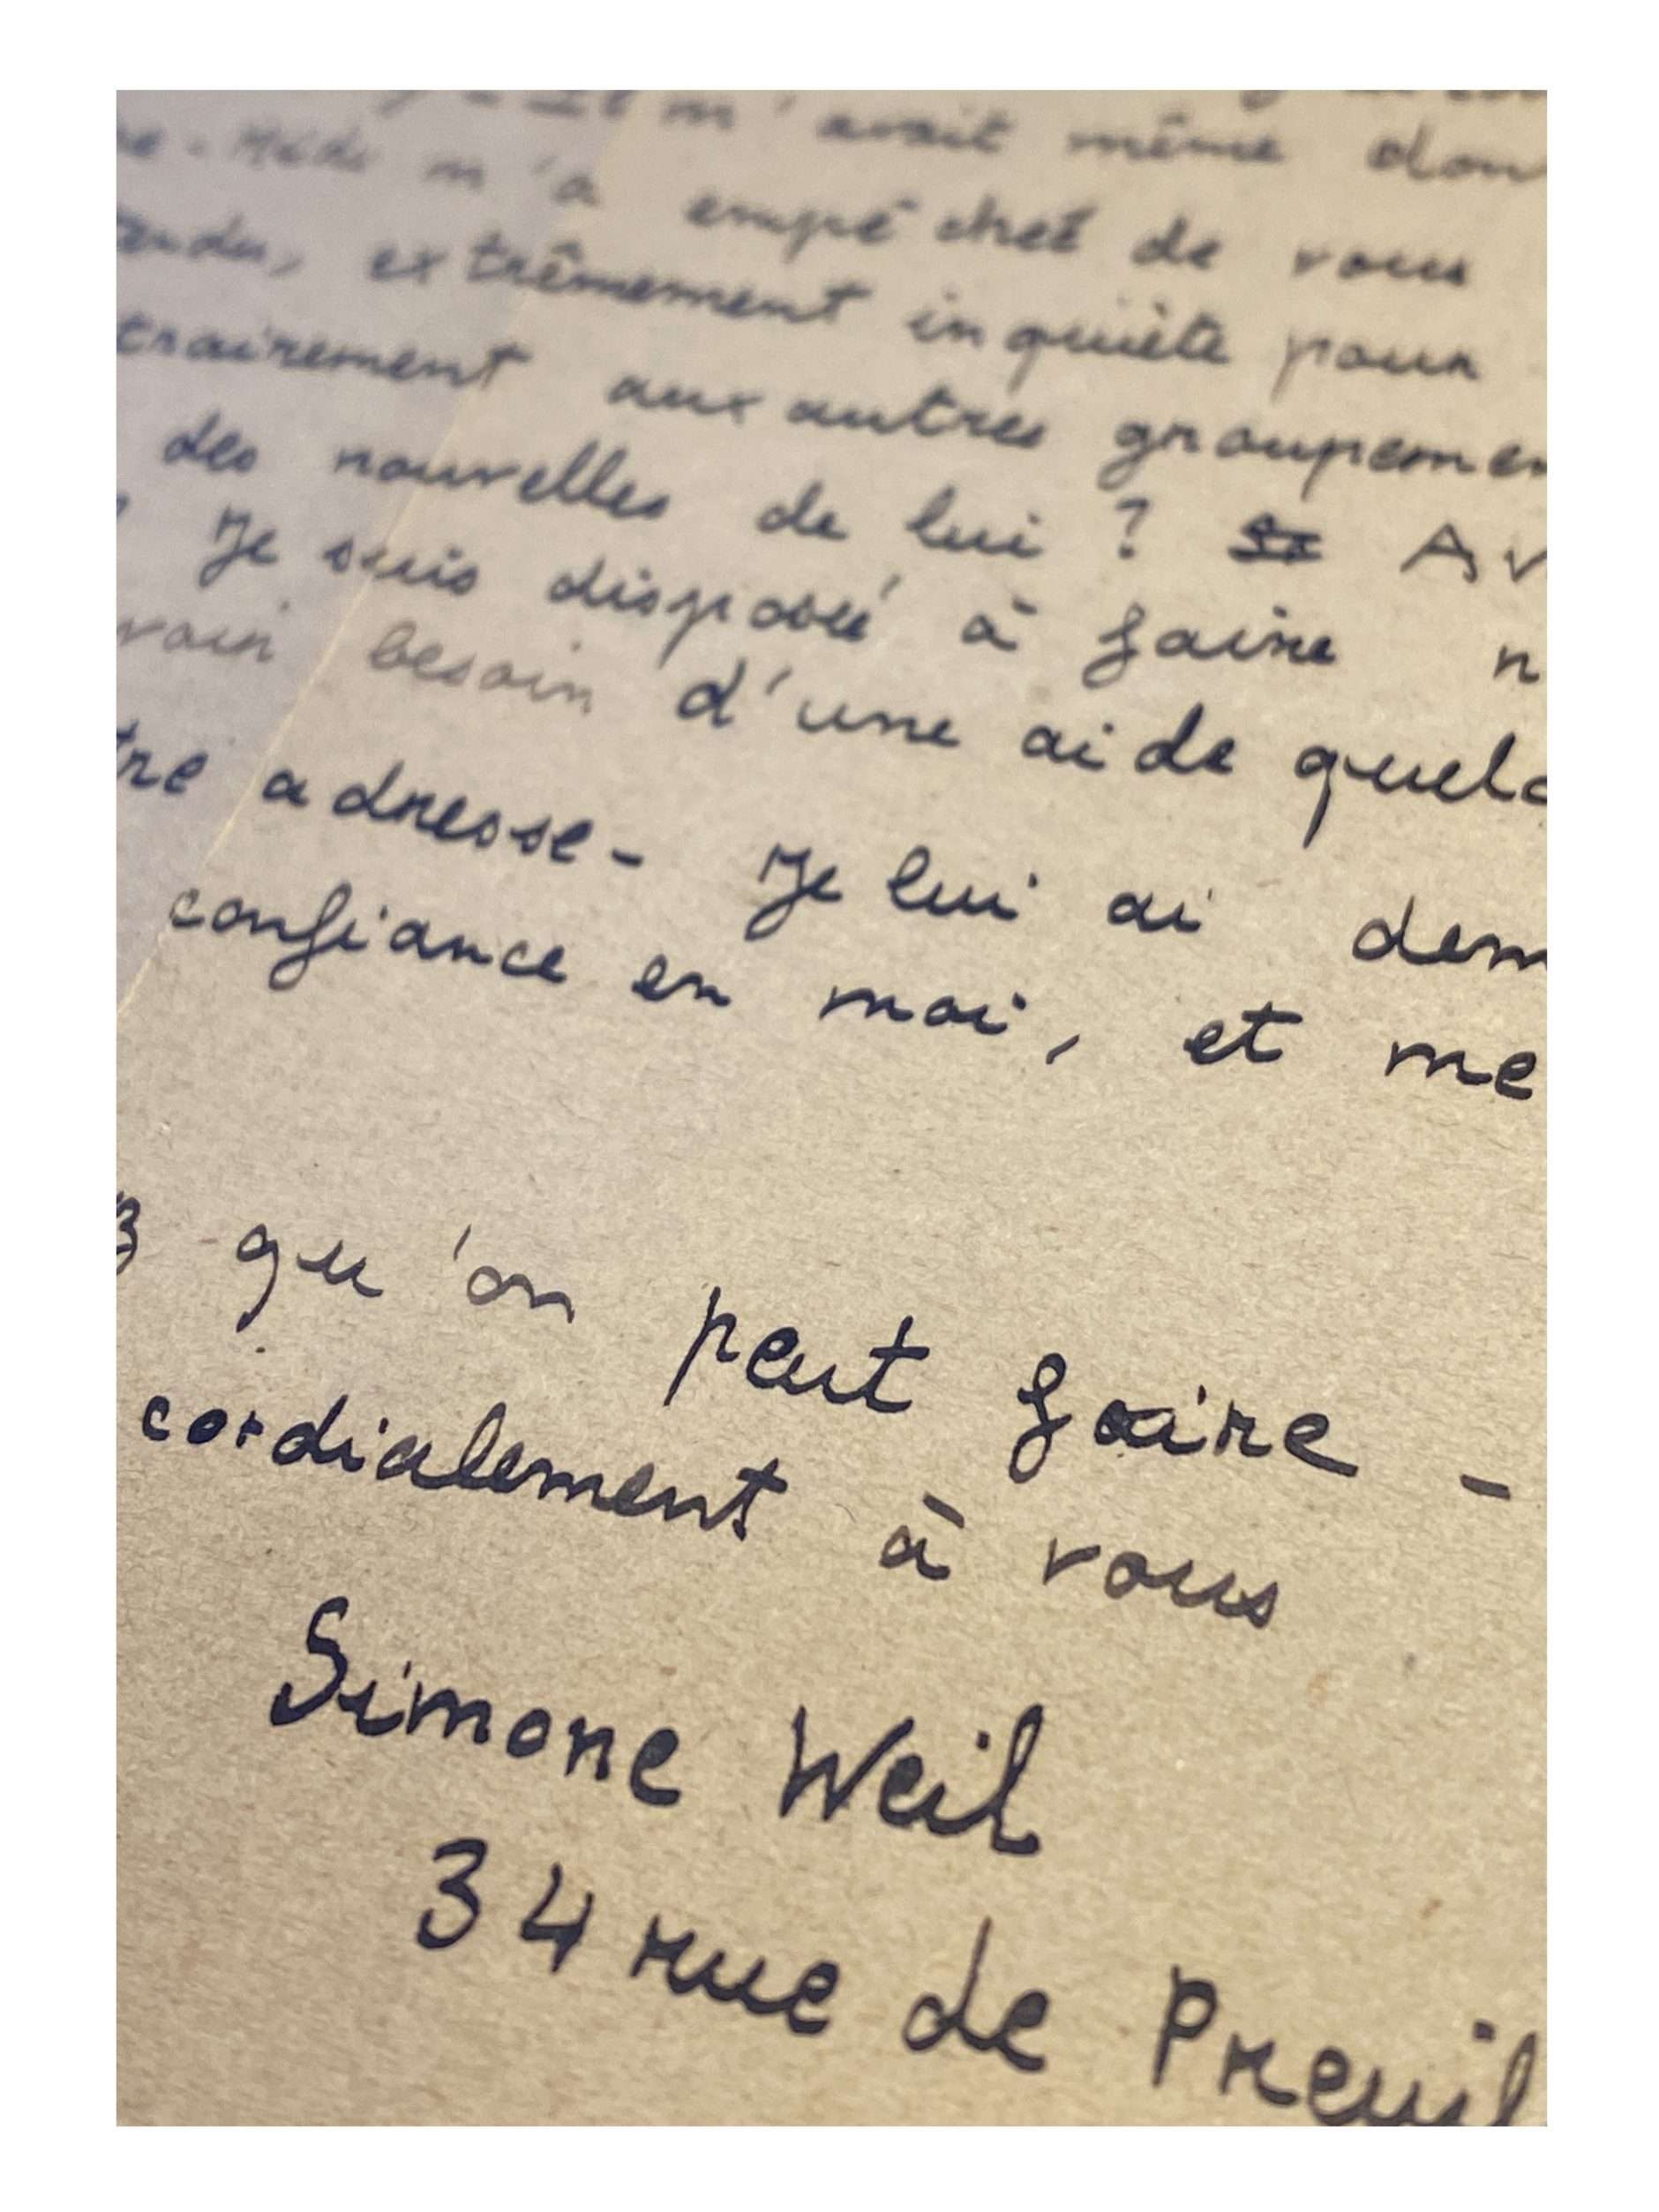 m'avait même don
m'a empêchet de vous
extrêmement inquiète pour
trairement aux autres groupemen
des nouvelles de lui ? Av
Je suis disposé à faire n
voir besoin d'une aide quelc
tre adresse - Je lui ai dem
confiance en moi, et me
qu'on peut faire -
cordialement à vous
Simone Weil
34 rue de Preuil